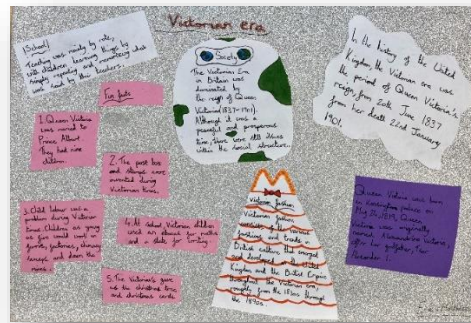 Victorian era
(School)
Teaching was mainly by rote,
with children learning things by
simply repeating and memorising what
was said by the teachers.
Fun facts
1. Queen Victoria
was married to
Prince Albert
They had nine
children.
2. The post box
and stamps were
invented during
Victorian times.
3. Child labour was a
problem during Victorian
times. Children as young
as five could work on
farms, factories, chimney
and down the
mines.
4. At school Victorian children
used an abacus for maths
and a slate for writing.
5. The Victorians gave
us the christmas tree
and christmas cards.
Society
The Victorian Era
in Britain was
dominated by
the reign of Queen
Victoria (1837-1901).
Although it was a
peaceful and prosperous
time, there were still issues
within the social structure.
Victorian fashion
Victorian fashion
consists of the various
fashions and trends in
British culture that emerged
and developed in the United
Kingdom and the British Empire
throughout the Victorian era,
roughly from the 1830s through
the 1890s.
In the history of the United
Kingdom, the Victorian era was
the period of Queen Victoria's
reign, from 20th June 1837
her death 22nd January
1901.
Queen Victoria was born
in Kensington palace on
May 24, 1819. Originally
Victoria was
named Alexandrina Victoria,
after her godfather, Tsar
Alexander I.